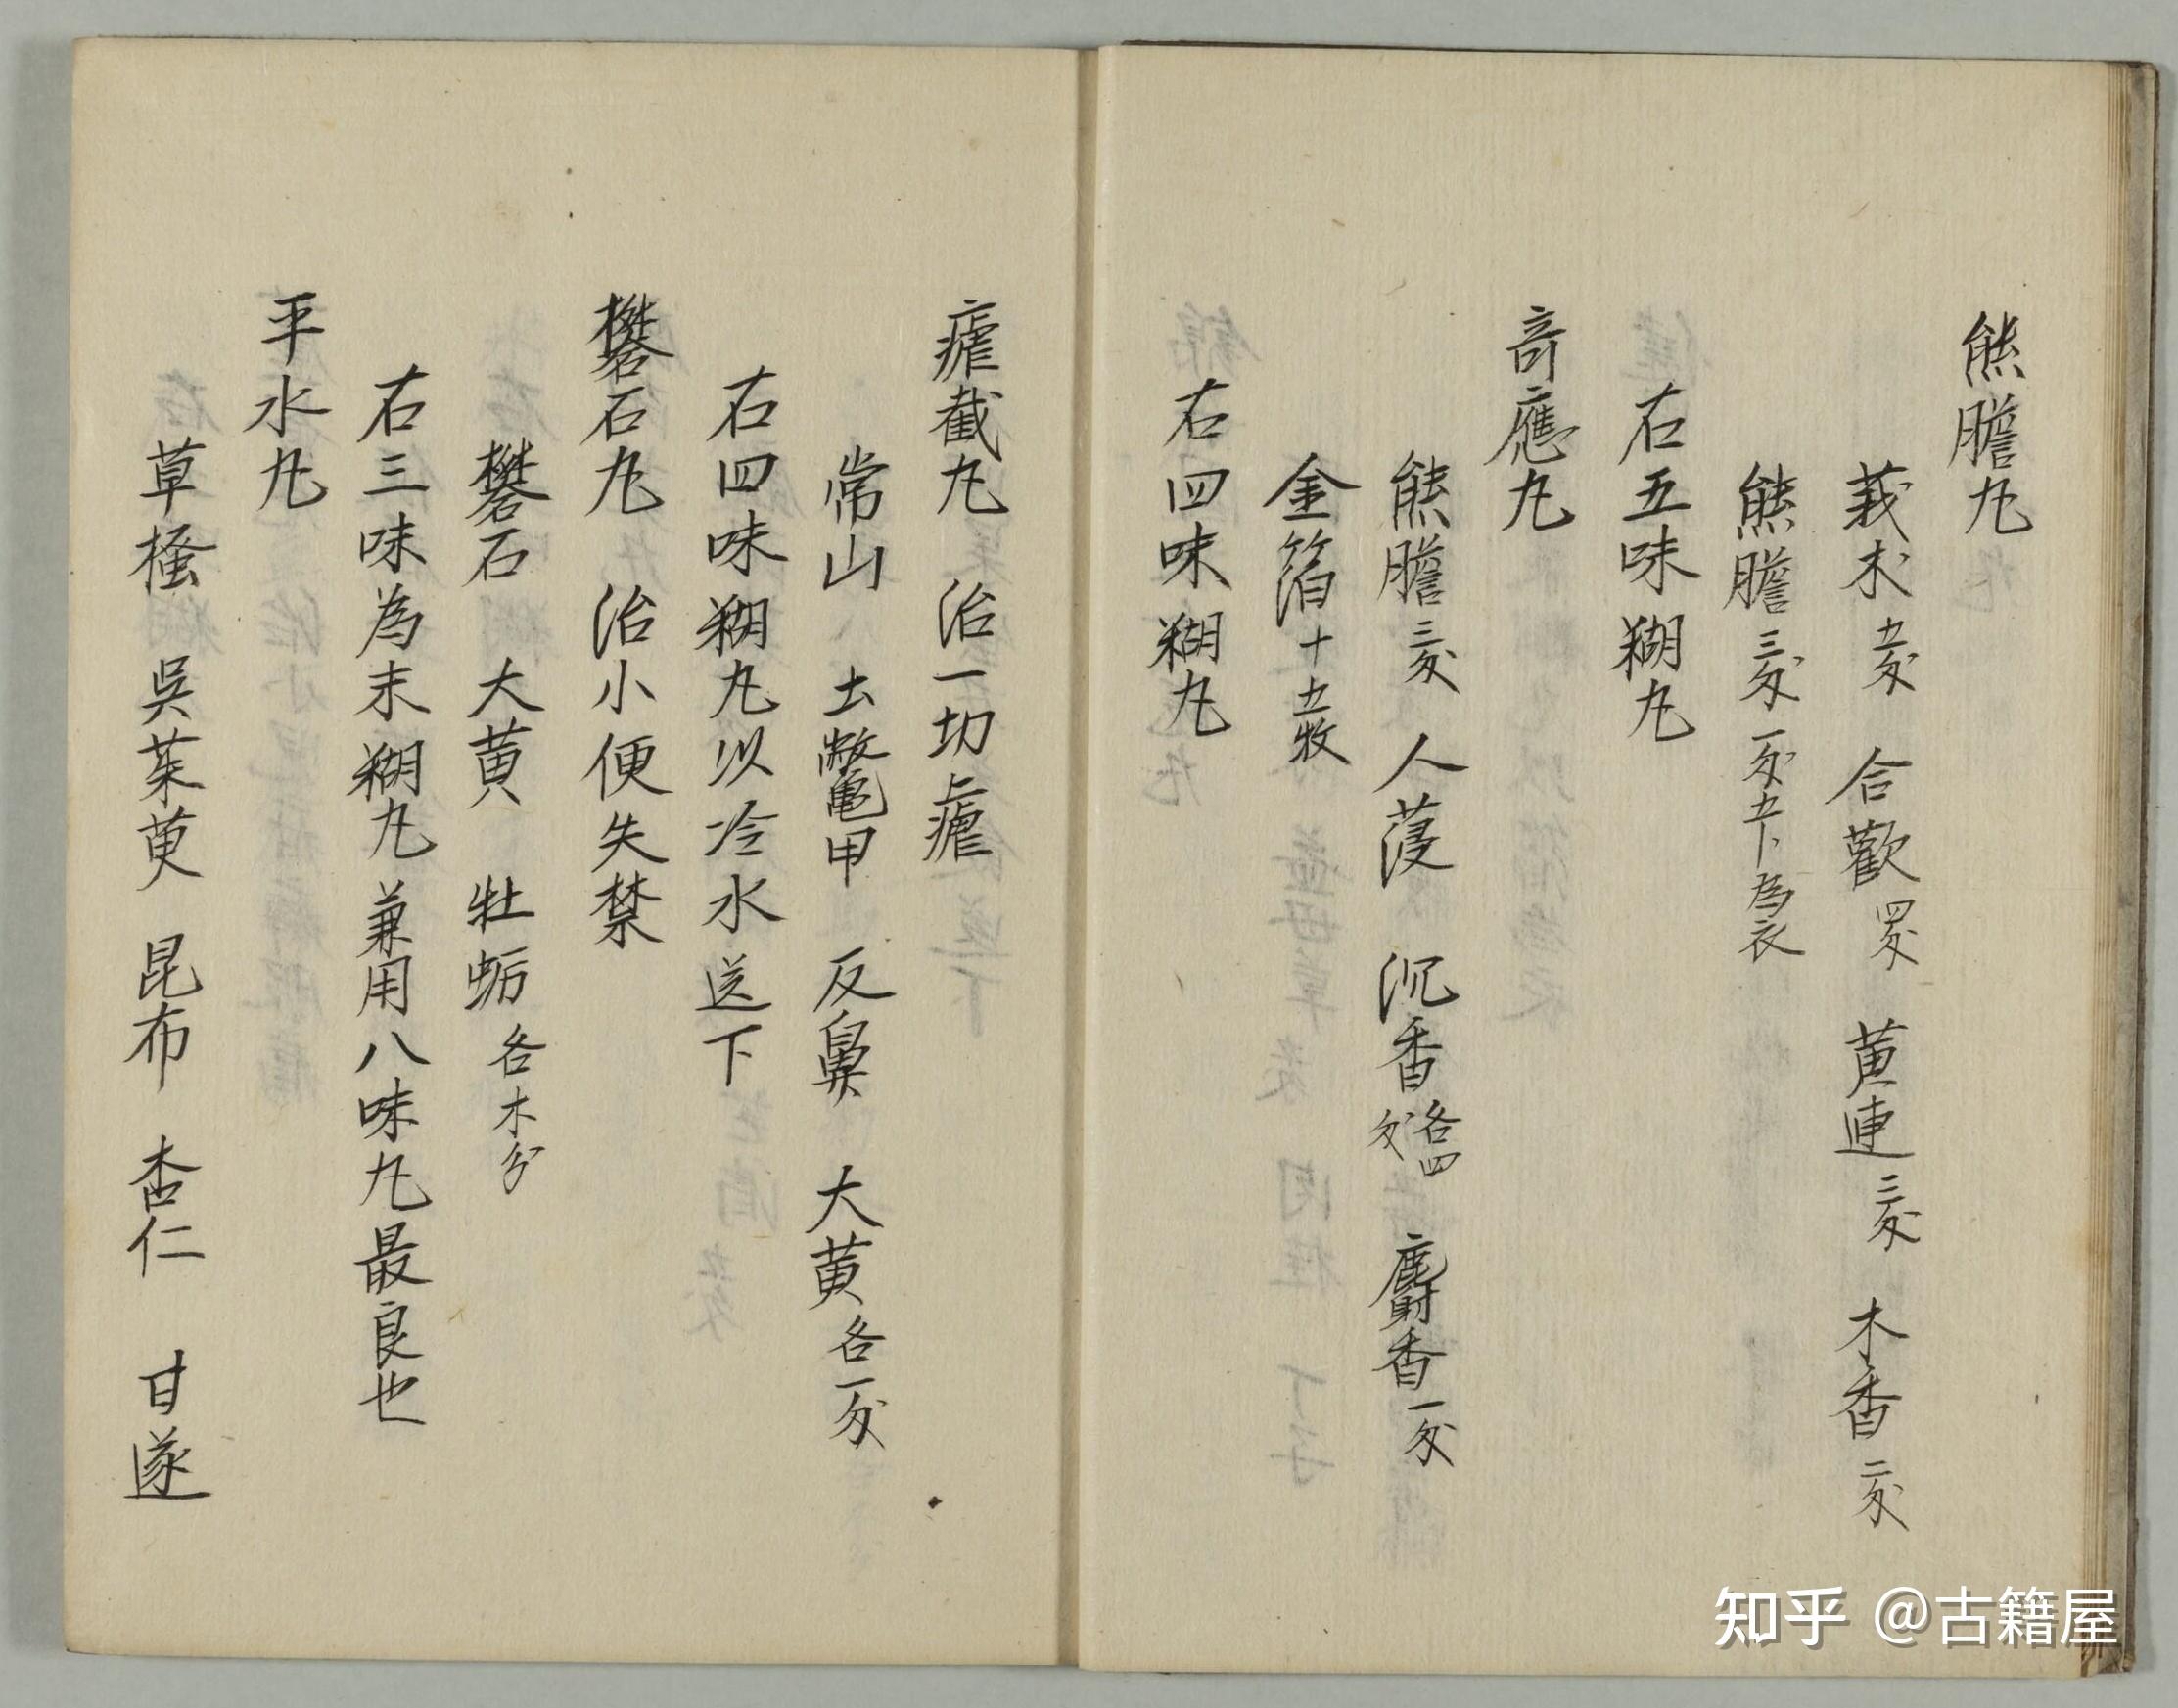 熊膽丸
莪朮五匁 合歡四匁 黄連三匁 木香二匁
熊膽三匁 一匁五下 為衣
右五味糊丸
奇應丸
熊膽三匁 人薓 沉香各四匁 麝香一匁
金箔十五枚
右四味糊丸
瘧截丸 治一切瘧
常山 土鼈甲 反鼻 大黄各一匁
右四味糊丸以冷水送下
礬石丸 治小便失禁
礬石 大黄 牡蛎各木分
右三味為末糊丸兼用八味丸最良也
平水丸
草搔 吳茱萸 昆布 杏仁 甘遂
知乎 @古籍屋